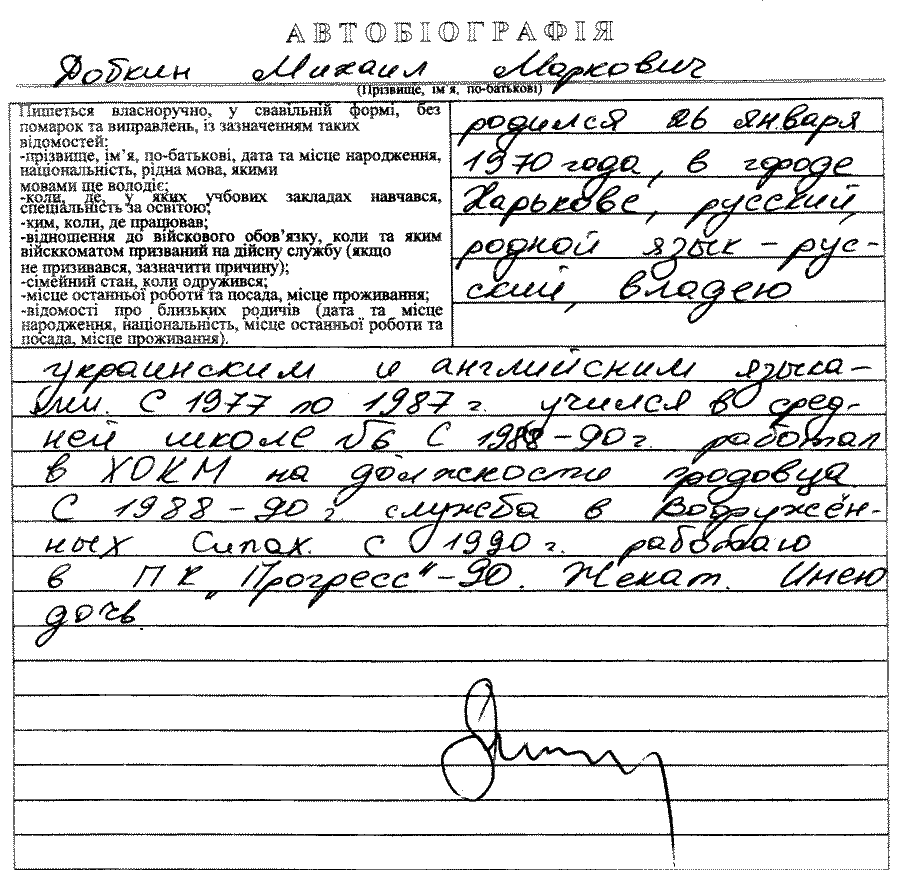 АВТОБІОГРАФІЯ
Добкин Михаил Маркович
(Прізвище, ім'я, по-батькові)
Пишеться власноручно, у свавільній формі, без
помарок та виправлень, із зазначенням таких
відомостей:
-прізвище, ім'я, по-батькові, дата та місце народження,
національність, рідна мова, якими
мовами ще володіє;
-коли, де, у яких учбових закладах навчався,
спеціальність за освітою;
-ким, коли, де працював;
-відношення до війскового обов'язку, коли та яким
війсккоматом призваний на дійсну службу (якщо
не призивався, зазначити причину);
-сімейний стан, коли одружився;
-місце останньої роботи та посада, місце проживання;
-відомості про близьких родичів (дата та місце
народження, національність, місце останньої роботи та
посада, місце проживання).
родился 26 января
1970 года, в городе
Харькове, русский,
родной язык – рус-
ский, владею
украинским и английсним языка-
ми. С 1977 по 1987 г. учился в сред-
ней школе №6 С 1988-90г. работал
в ХОКМ на должности продовца
С 1988-90 г. служба в Водружён-
ных Силах. С 1990 г. работаю
в ПК „Прогресс“-90. Жекат. Инею
дочь.